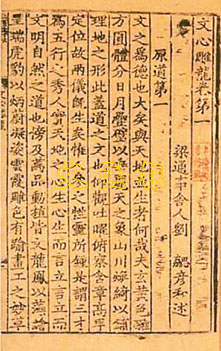 文心雕龍卷第一
梁通事舍人劉 勰彥和述
原道第一
文之爲德也大矣與天地並生者何哉夫玄黃色雜
方圓體分日月疊璧以垂麗天之象山川煥綺以鋪
理地之形此蓋道之文也仰觀吐曜俯察含章高卑
定位故兩儀旣生矣惟人參之性靈所鍾是謂三才
爲五行之秀人實天地之心生心生而言立言立而
文明自然之道也傍及萬品動植皆文龍鳳以藻繪
呈瑞虎豹以炳蔚凝姿雲霞雕色有踰畫工之妙草